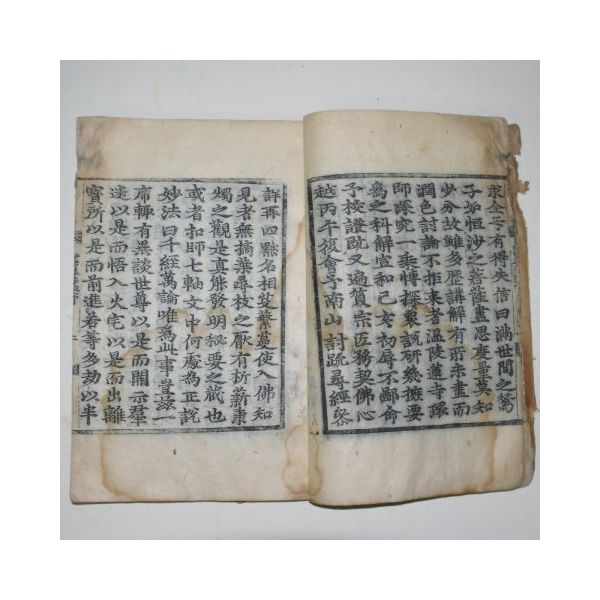 求全乎有得失信曰滿世間之鶖
子如恒沙之菩薩盡思度量莫知
少分故雖多歷講解有所未盡而
潤色討論不拒来者温陵蓮寺環
師深究一乘愽探衆說研幾摭要
為之科解宣和己亥初辱不鄙命
予按證既又遍質宗匠務契佛心
越丙午復會予南山討疏尋經叅
詳再四黜名相芟繁蔓使入佛知
見者無摘葉尋枝之厭有析薪秉
燭之觀是真能發明秘要之藏也
或者扣師七軸文中何處為正說
妙法曰千經萬論唯為此事豈玆一
席輒有異談世尊以是而開示羣
迷以是而悟入火宅以是而出離
寳所以是而前進若等多劫以半